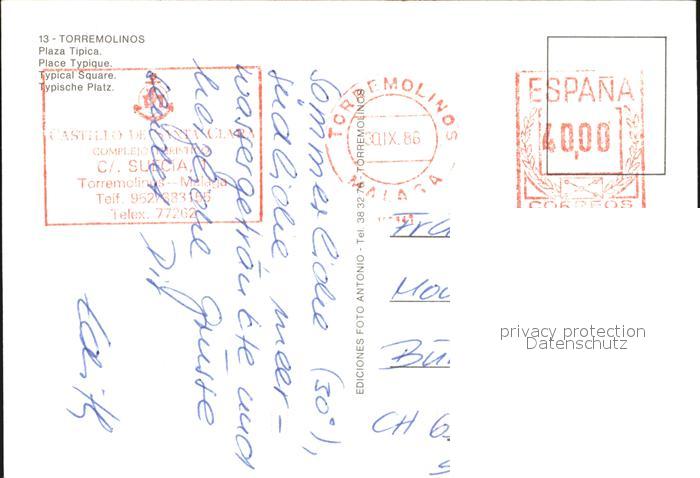 13 - TORREMOLINOS
Plaza Tipica.
Place Typique.
Typical Square.
Typischer Platz.
CASTILLO DE SANTA CLARA
COMPLEJO TURISTICO
C/. SUECIA,
Torremolinos - Malaga
Telf. 952/383155
Telex. 77262
TORREMOLINOS
30.IX.86
MALAGA
ESPAÑA
40,00
CORREOS
EDICIONES FOTO ANTONIO - Tel. 38 32 76 - TORREMOLINOS
Sommerliche (30°),
südliche meer-
wassergetränkte und
herzliche Grüsse
sendet Dir
Fra
Mou
CH 6
privacy protection
Datenschutz